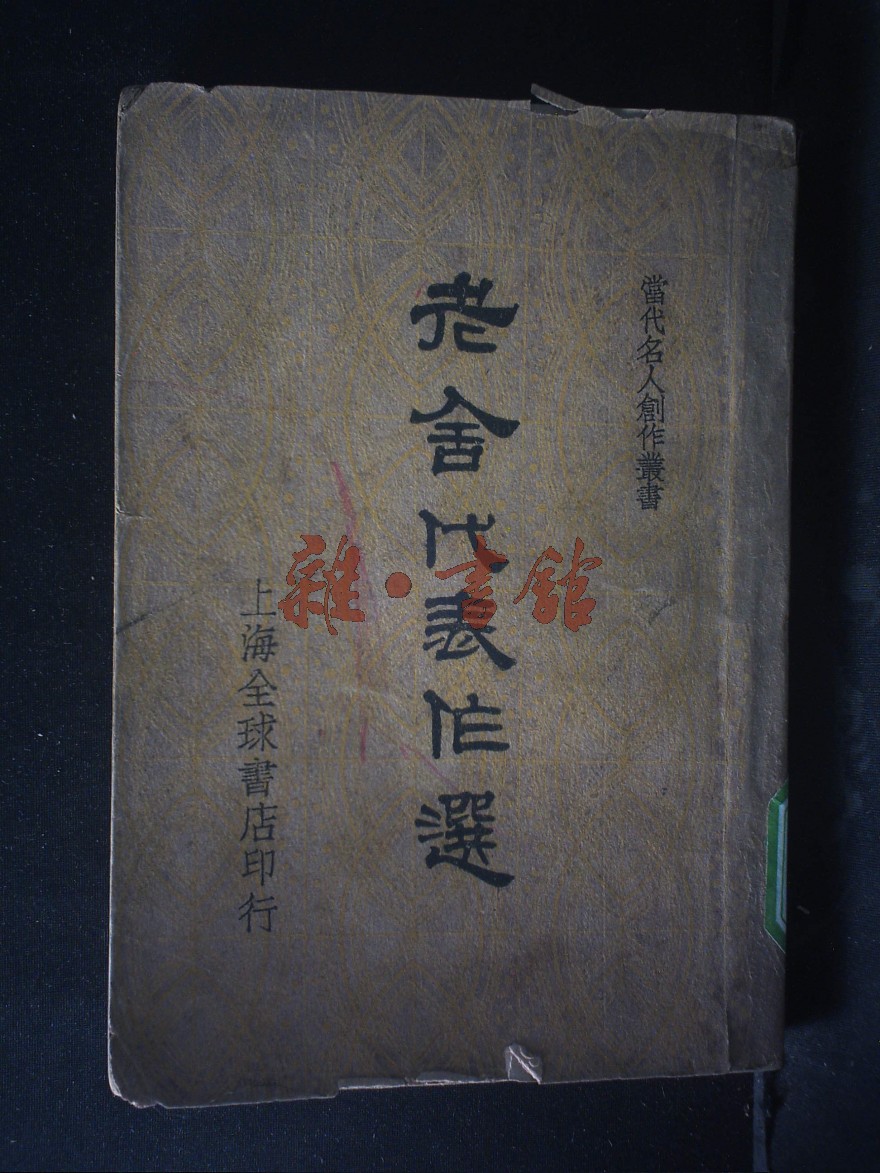 當代名人創作叢書
老舍代表作選
上海全球書店印行
雜·書館